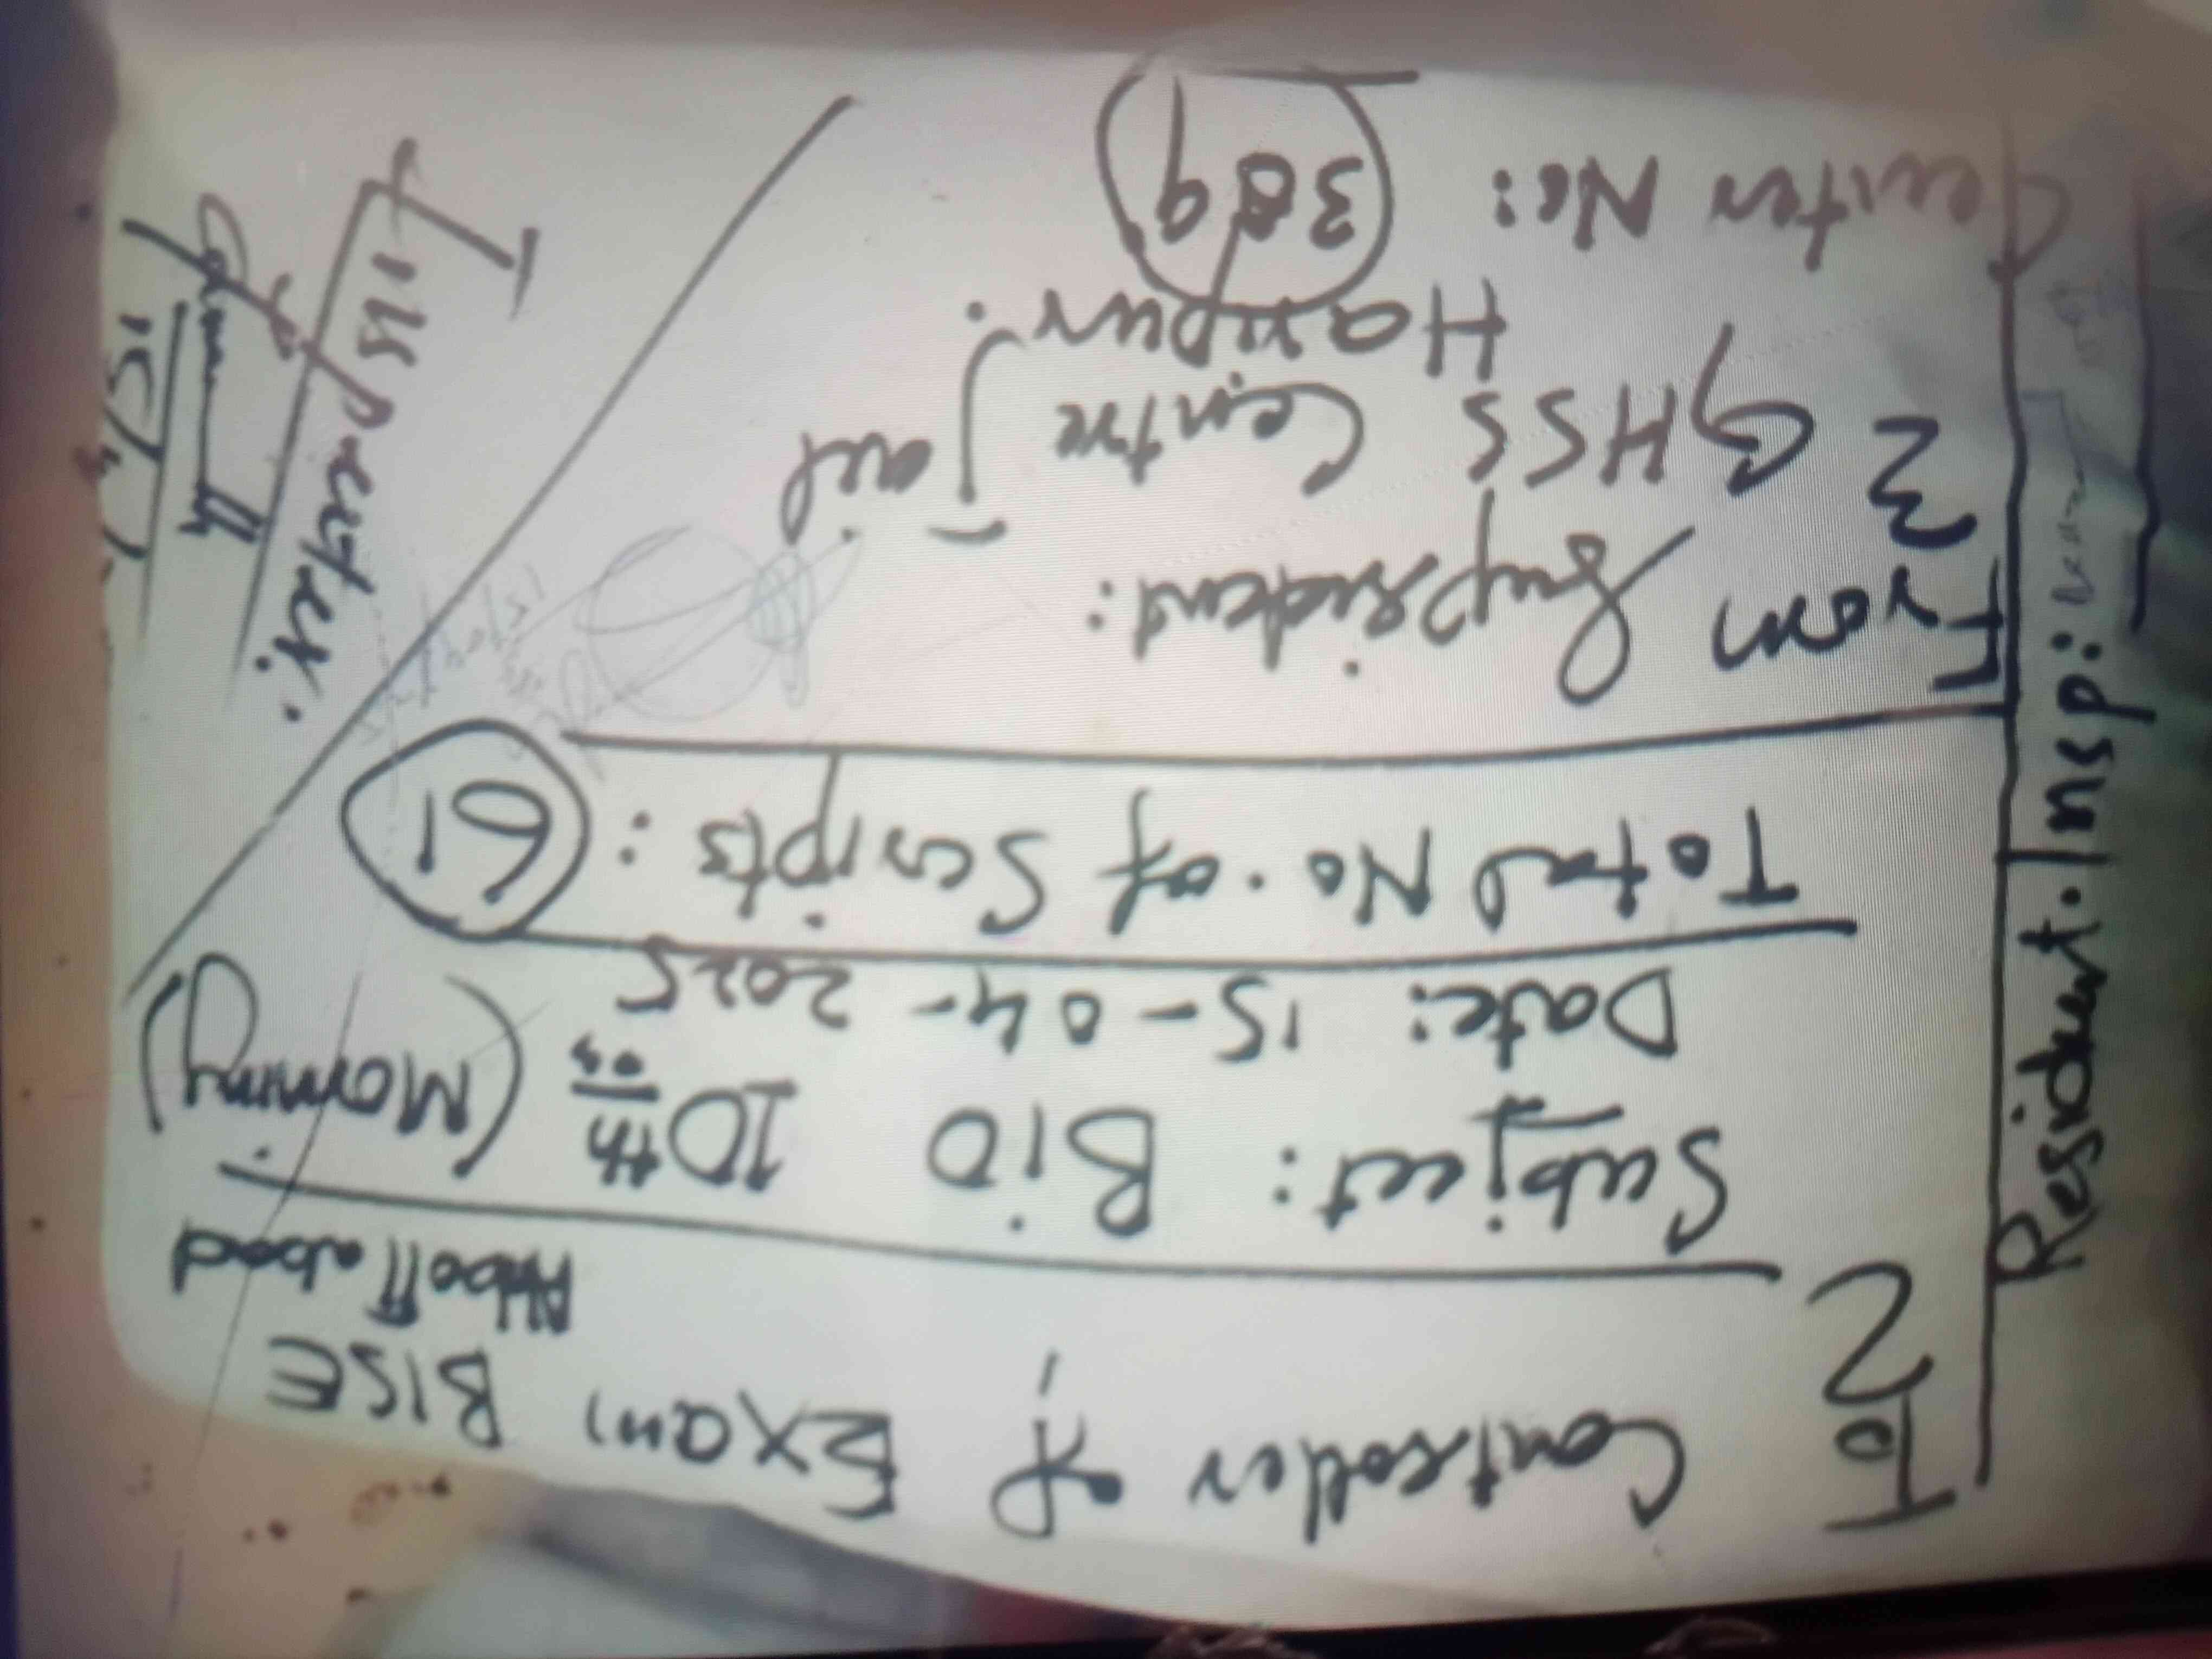 To
Controller of Exam BISE
Abbottabad
Subject: Bio 10th (Morning)
Date: 15-04-2025
Total No. of Scripts: 61
From
Supridend:
GHSS Centre Jail
Haripur.
Center No: 389
Resident. Insp:
Inspector.